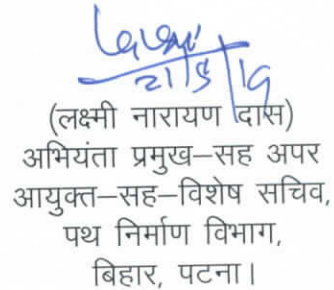 21/5/19
(लक्ष्मी नारायण दास)
अभियंता प्रमुख–सह अपर
आयुक्त–सह–विशेष सचिव,
पथ निर्माण विभाग,
बिहार, पटना।